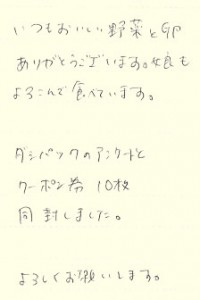 いつもおいしい野菜と卵
ありがとうございます。娘も
よろこんで食べています。
ダシパックのアンケートと
クーポン券 10枚
同封しました。
よろしくお願いします。